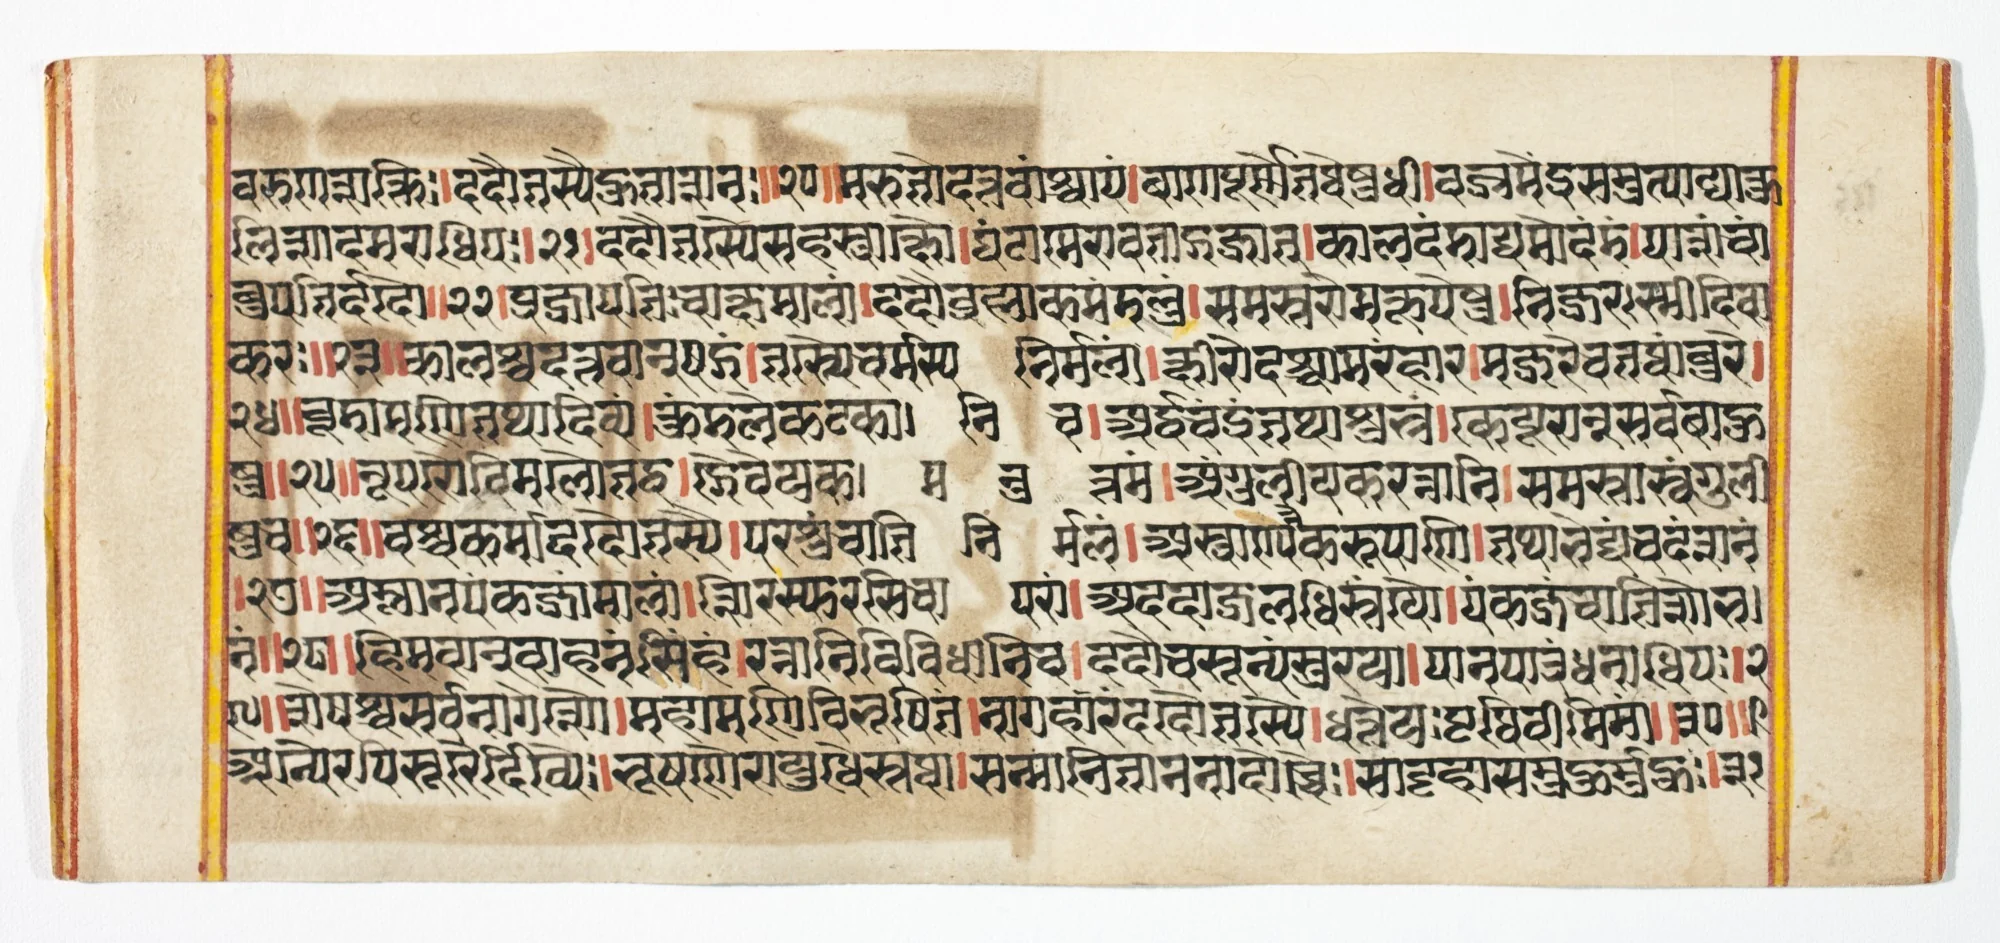 वरुणाशक्तिः।ददौतस्यैहुताशनः॥२०॥मरुतोदत्तवांश्चापं।बाणपूर्णेतथेषुधी।वज्रमैंद्रसमुत्पाद्यकु
लिशादमराधिपः।२१।ददौतस्यैसहस्राक्षो।घंटामैरावताज्जगात्।कालदंडाद्यमोदंडं।पाशंचां
बुपतिर्ददौ॥२२।प्रजापतिःचाक्षमालां।ददौब्रह्माकमंडलुं।समस्तरोमकूपेषु।निजरश्मीदिवा
करः॥२३॥कालश्चदत्तवान्षड्गं।तस्यैचर्मस्य निर्मलं।क्षीरोदश्चामरंहार।मजरेचतथांबरे।
२४॥चूडामणितथादिव्यं।कुंडलेकटका नि च।अर्द्धचंद्रंतथाशुभ्रं।केयूरान्सर्वबाहु
षु॥२५॥नूपुरौविमलौतद्व।द्ग्रैवेयक म नु त्तमं।अंगुलीयकरत्नानि।समस्तास्वंगुली
षुच॥२६॥वश्वकर्माददौतस्यै।परशुंचाति नि र्मलं।अस्त्राण्यनेकरूपाणि।तथाभेद्यंचदंशनं
।२७॥अम्लानपंकजांमालां।शिरस्युरसिचा परां।अददाज्जलधिस्तस्यै।पंकजंचातिशोभ।
नं॥२८॥हिमवान्वाहनंसिंहं।रत्नानिविविधानिच।ददौचसून्यंसुरया।पानपात्रंधनाधिपः।२
९॥शेषश्चसर्वनागेशो।महामणिविभूषितं।नागहारंददौतस्यै।धत्तेयःपृथिवीमिमां॥३०॥
अन्यैरपिसूरैर्देव्यैः।भूषणैरायुधैस्तथा।सन्मानिताननादोच्चैः।साट्टहासमुहुर्मुहुः।३१